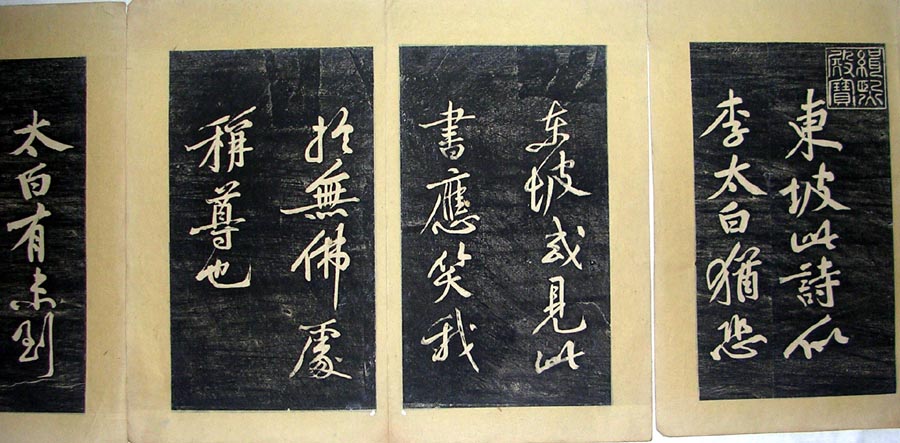 緝熙
殿寶
東坡此詩似
李太白猶恐
東坡或見此
書應笑我
於無佛處
稱尊也
太白有未到